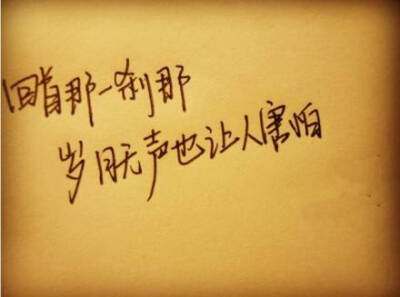 回首那一刹那
岁月无声也让人害怕